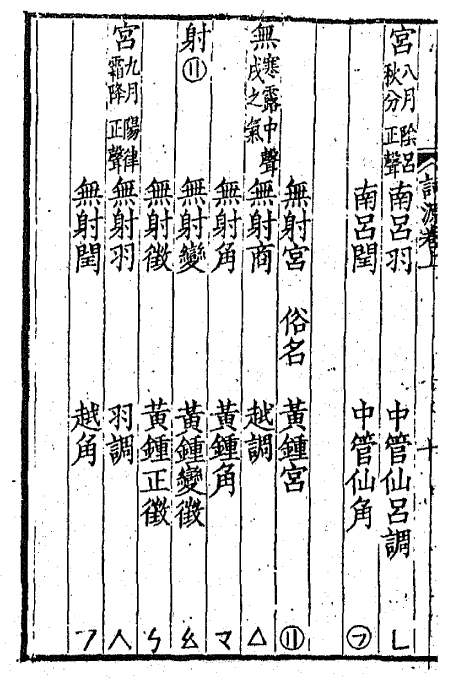 詞源卷上 十
宮 八月陰呂 秋分正聲 南呂羽 中管仙呂調 ㄴ
南呂閏 中管仙角 ㋫
無射宮 俗名 黃鍾宮 ⑪
無 寒露中聲 戌之氣 無射商 越調 △
無射角 黃鍾角 マ
射 ⑪ 無射變 黃鍾變徵
無射徵 黃鍾正徵 ㄣ
宮 九月陽律 霜降正聲 無射羽 羽調 人
無射閏 越角 フ